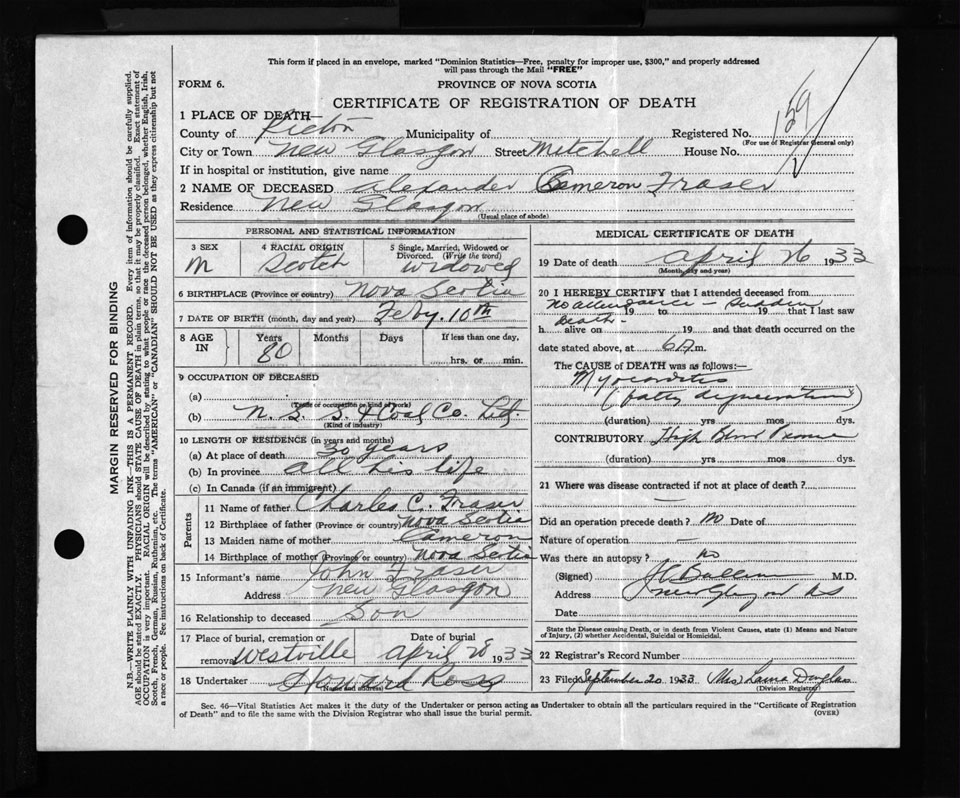 This form if placed in an envelope, marked "Dominion Statistics—Free, penalty for improper use, $300," and properly addressed
will pass through the Mail "FREE"
FORM 6.
PROVINCE OF NOVA SCOTIA
CERTIFICATE OF REGISTRATION OF DEATH
1 PLACE OF DEATH
County of Pictou Municipality of Registered No. 159
(For use of Registrar General only)
City or Town New Glasgow Street Mitchell House No.
If in hospital or institution, give name
2 NAME OF DECEASED Alexander Cameron Fraser
Residence New Glasgow
(Usual place of abode)
PERSONAL AND STATISTICAL INFORMATION
3 SEX 4 RACIAL ORIGIN 5 Single, Married, Widowed or
Divorced. (Write the word)
M Scotch Widowed
6 BIRTHPLACE (Province or country) Nova Scotia
7 DATE OF BIRTH (month, day and year) Feby. 10th
8 AGE IN Years Months Days If less than one day,
80 hrs. or min.
9 OCCUPATION OF DECEASED
(a)
(Trade or occupation or kind of work)
(b) N. S. S. & Coal Co. Ltd.
(Kind of industry)
10 LENGTH OF RESIDENCE (in years and months)
(a) At place of death 30 years
(b) In province all his life
(c) In Canada (if an immigrant)
Parents
11 Name of father Charles C. Fraser
12 Birthplace of father (Province or country) Nova Scotia
13 Maiden name of mother Cameron
14 Birthplace of mother (Province or country) Nova Scotia
15 Informant's name John Fraser
Address New Glasgow
16 Relationship to deceased Son
17 Place of burial, cremation or Date of burial
removal Westville April 28 1933
18 Undertaker Howard Ross
(Name and address)
MEDICAL CERTIFICATE OF DEATH
19 Date of death April 26 1933
(Month, day and year)
20 I HEREBY CERTIFY that I attended deceased from
No attendance — Sudden
19 to 19 that I last saw
death —
h alive on 19 and that death occurred on the
date stated above, at 6 A.m.
The CAUSE OF DEATH was as follows:—
Myocarditis
(fatty degeneration)
(duration) yrs mos dys.
CONTRIBUTORY High Blood Pressure
(duration) yrs mos dys.
21 Where was disease contracted if not at place of death?
—
Did an operation precede death? No Date of
Nature of operation —
Was there an autopsy? No
(Signed) M.D.
Address New Glasgow NS
Date
State the Disease causing Death, or in death from Violent Causes, state (1) Means and Nature
of Injury, (2) whether Accidental, Suicidal or Homicidal.
22 Registrar's Record Number
23 Filed September 20 1933 Mrs Laura Douglas
(Division Registrar)
Sec. 46—Vital Statistics Act makes it the duty of the Undertaker or person acting as Undertaker to obtain all the particulars required in the "Certificate of Registration
of Death" and to file the same with the Division Registrar who shall issue the burial permit. (OVER)
MARGIN RESERVED FOR BINDING
N.B.—WRITE PLAINLY WITH UNFADING INK—THIS IS A PERMANENT RECORD. Every item of information should be carefully supplied.
AGE should be stated EXACTLY. PHYSICIANS should STATE CAUSE OF DEATH in plain terms, so that it may be properly classified. Exact statement of
OCCUPATION is very important. RACIAL ORIGIN will be described by stating to what people or race the deceased person belonged, whether English, Irish,
Scotch, French, German, Russian, Ruthenian, etc. The terms "AMERICAN" or "CANADIAN" SHOULD NOT BE USED as they express citizenship but not
a race or people. See instructions on back of Certificate.